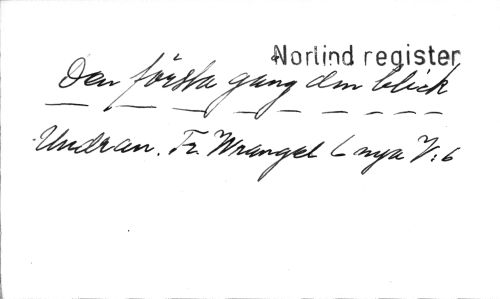 Norlind register
Den första gang den blick
Undran. Fr. Wrangel 6 nya V:6